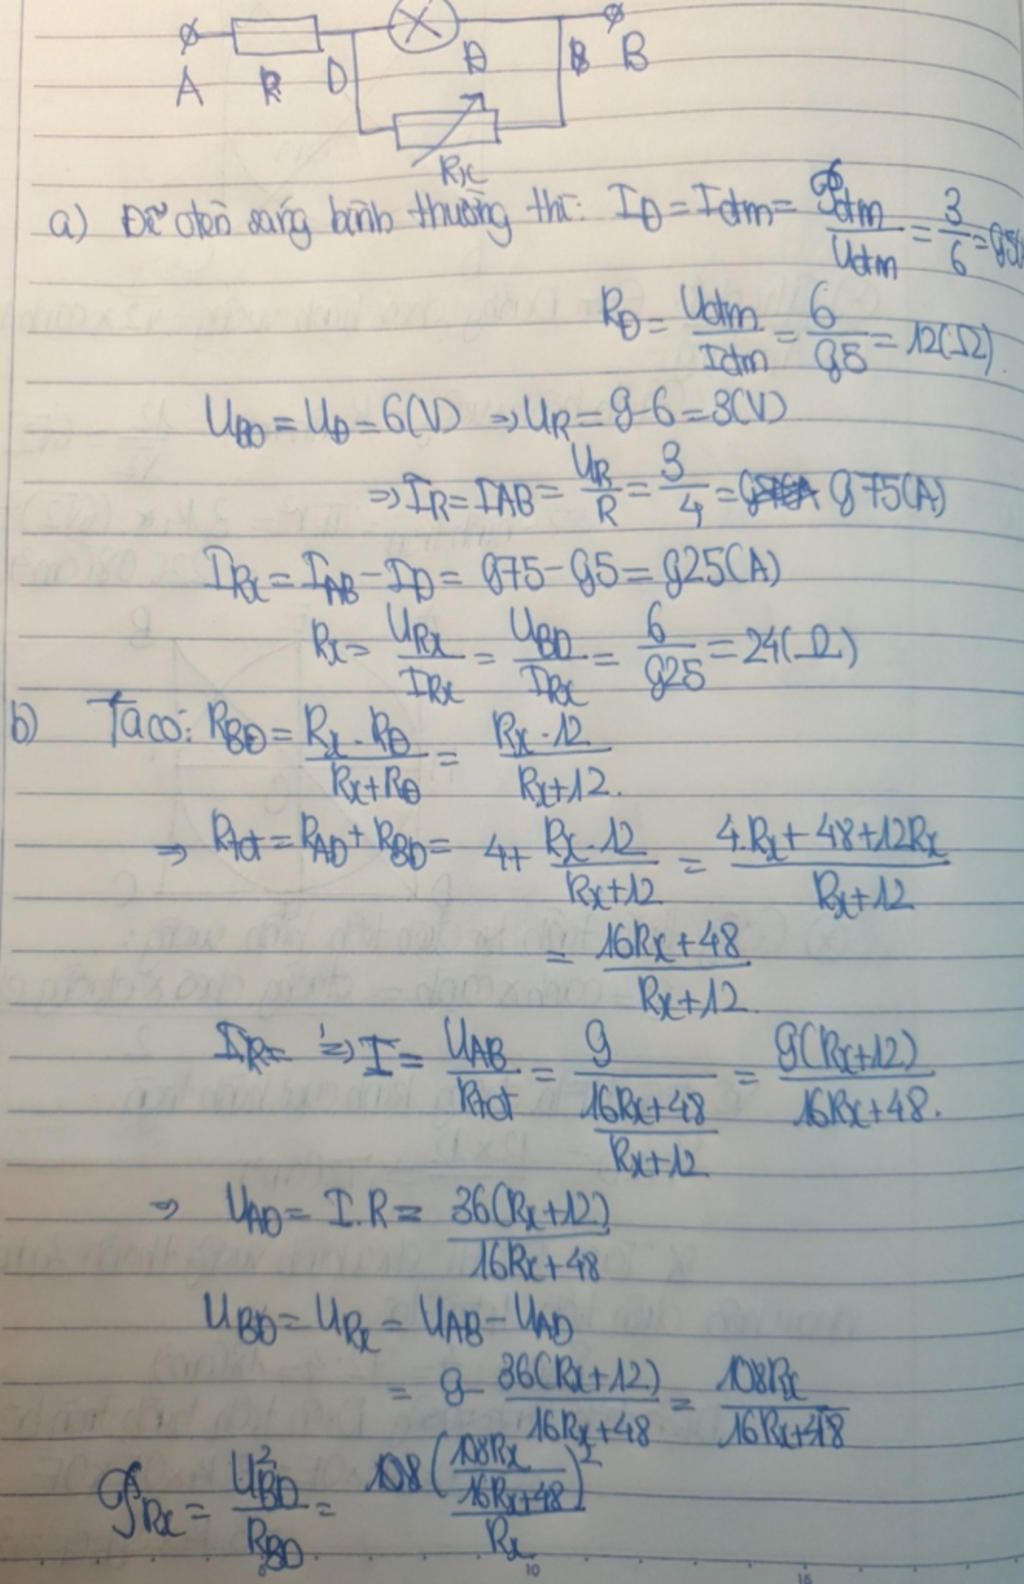 A R D Đ B B
Rx
a) Để đèn sáng bình thường thì: I_Đ = I_đm = P_đm/U_đm = 3/6 = 0,5(
R_Đ = U_đm/I_đm = 6/0,5 = 12(Ω).
U_BD = U_Đ = 6(V) ⇒ U_R = 9-6 = 3(V)
⇒ I_R = I_AB = U_R/R = 3/4 = 0,75(A)
I_Rx = I_AB - I_Đ = 0,75 - 0,5 = 0,25(A)
Rx = U_Rx/I_Rx = U_BD/I_Rx = 6/0,25 = 24(Ω)
b) Ta có: R_BD = Rx . R_Đ/Rx + R_Đ = Rx . 12/Rx + 12.
⇒ Rtđ = R_AD + R_BD = 4 + Rx . 12/Rx + 12 = 4.Rx + 48 + 12Rx/Rx + 12
= 16Rx + 48/Rx + 12.
I_R = ⇒ I = U_AB/Rtđ = 9/(16Rx + 48/Rx + 12) = 9(Rx + 12)/16Rx + 48.
⇒ U_AD = I.R = 36(Rx + 12)/16Rx + 48
U_BD = U_Rx = U_AB - U_AD
= 9 - 36(Rx + 12)/16Rx + 48 = 108Rx/16Rx + 48
P_Rx = U²_BD/R_BD = 108(108Rx/16Rx + 48)²/Rx